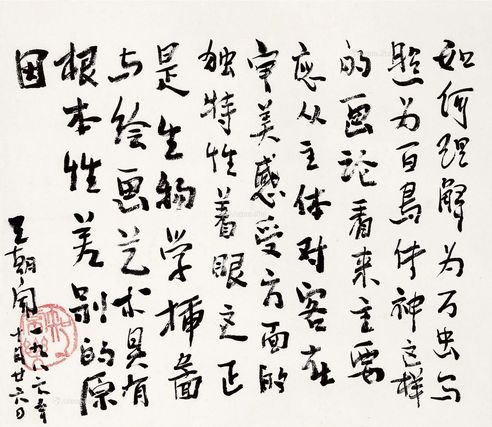 如何理解为万虫写
照为百鸟传神这样
的画论看来主要
应从主体对客在
审美感受方面的
独特性着眼这正
是生物学插图
与绘画艺术具有
根本性差别的原
因
王朝闻一九八六年
十月廿六日